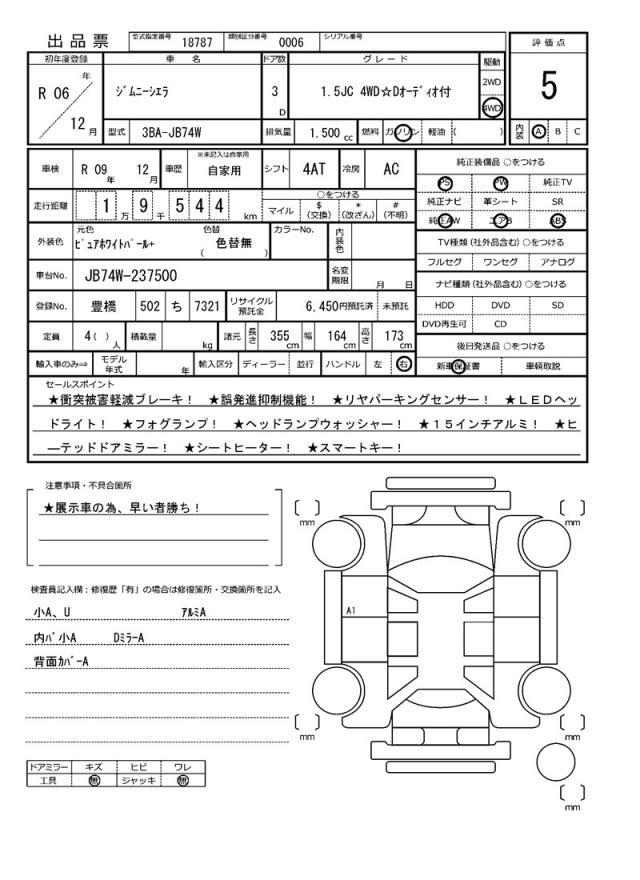 出品票 型式指定番号 18787 類別区分番号 0006 シリアル番号
評価点 5
初年度登録 車名 ドア数 グレード 駆動
R 06年 12月 ジムニーシエラ 3D 1.5JC 4WD☆Dオーディオ付 2WD 4WD
型式 3BA-JB74W 排気量 1.500cc 燃料 ガソリン 軽油 ( ) 内装 A B C
車検 R 09年 12月 車歴 ※未記入は自家用 自家用 シフト 4AT 冷房 AC
純正装備品 ○をつける
PS PW 純正TV
純正ナビ 革シート SR
純正AW エアB ABS
走行距離 1万9千544km ○をつける
マイル $(交換) *(改ざん) #(不明)
外装色 元色 ピュアホワイトパール+ 色替 ( 色替無 ) カラーNo. 内装色
TV種類(社外品含む)○をつける
フルセグ ワンセグ アナログ
車台No. JB74W-237500 名変期限 月 日
ナビ種類(社外品含む)○をつける
HDD DVD SD
DVD再生可 CD
登録No. 豊橋 502 ち 7321 リサイクル預託金 6,450円預託済 未預託
定員 4( )人 積載量 kg 諸元 長さ 355cm 幅 164cm 高さ 173cm
後日発送品 ○をつける
新車保証書 車輌取説
輸入車のみ⇒ モデル年式 年 輸入区分 ディーラー 並行 ハンドル 左 右
セールスポイント
★衝突被害軽減ブレーキ! ★誤発進抑制機能! ★リヤパーキングセンサー! ★LEDヘッ
ドライト! ★フォグランプ! ★ヘッドランプウォッシャー! ★15インチアルミ! ★ヒ
ーテッドドアミラー! ★シートヒーター! ★スマートキー!
注意事項・不具合箇所
★展示車の為、早い者勝ち!
検査員記入欄:修復歴「有」の場合は修復箇所・交換箇所を記入
小A、U アルミA
内バ小A DミラーA
背面カバーA
ドアミラー キズ ヒビ ワレ
工具 無 ジャッキ 無
[ ] mm
[ ] mm
A1
[ ] mm
[ ] mm
[ ] mm